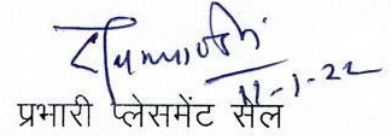 11-1-22
प्रभारी प्लेसमेंट सैल